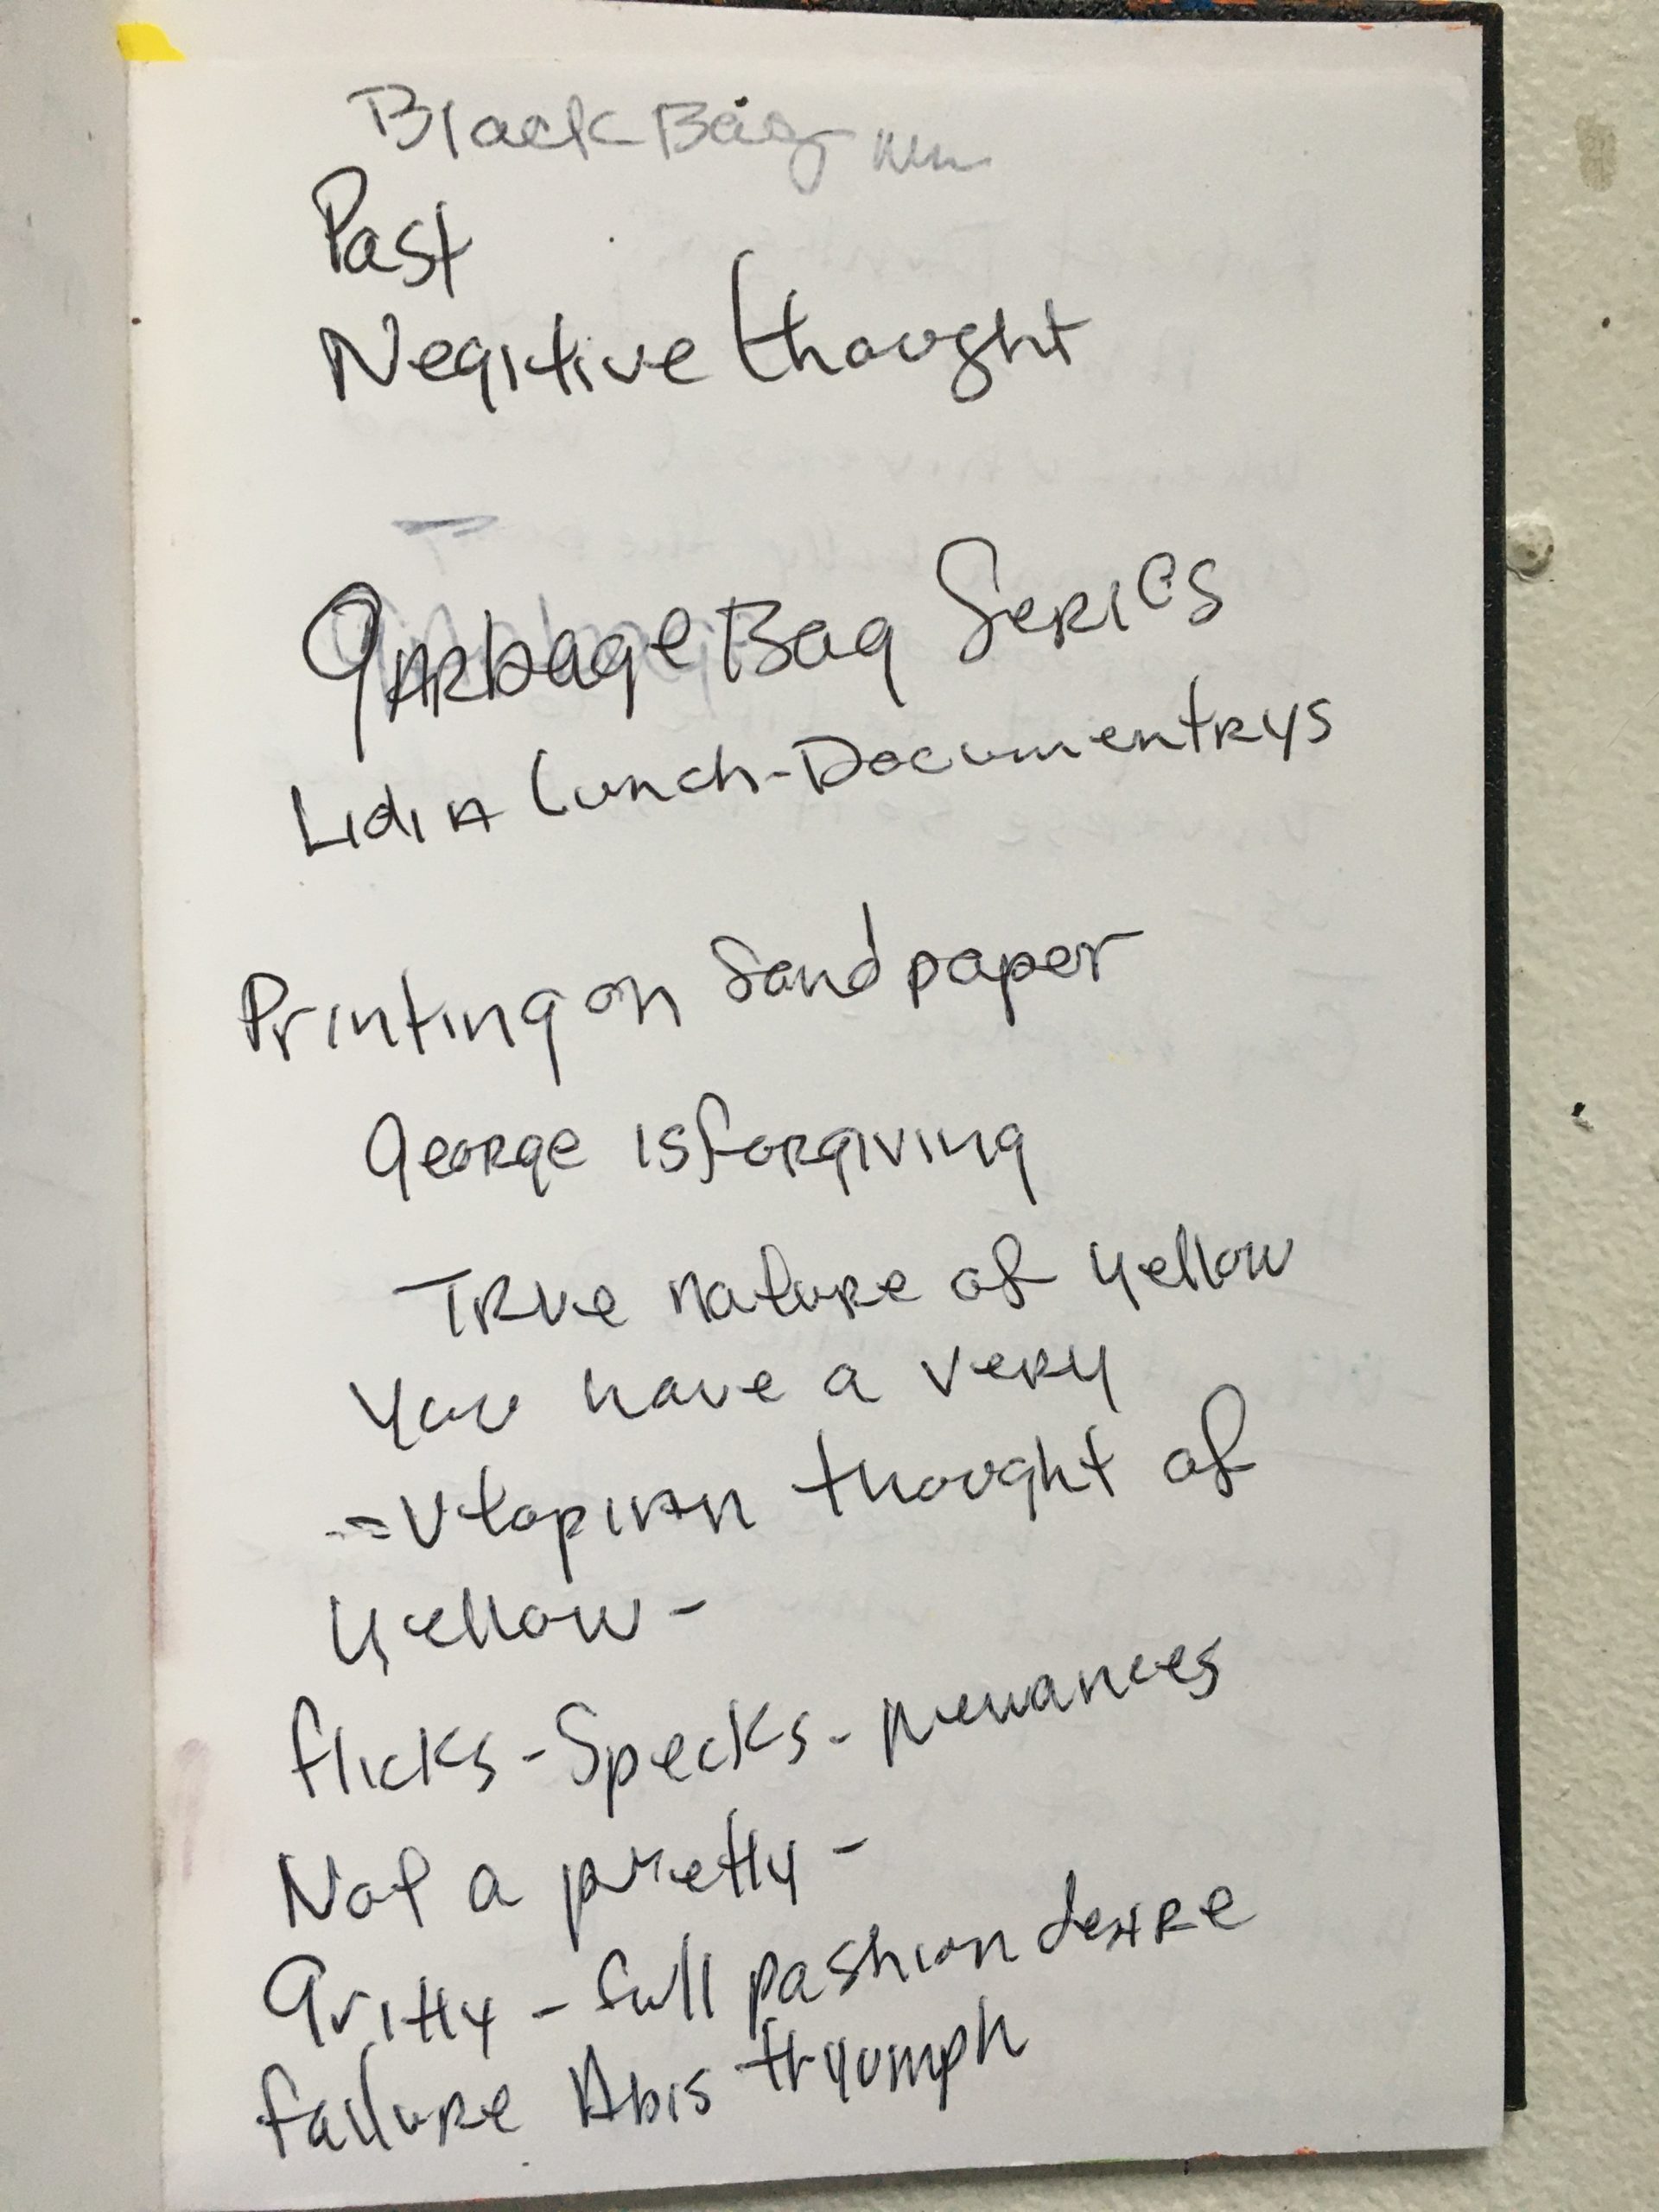 Black Bag
Past
Negitive thought
Garbage Bag Series
Lidia Lunch-Documentrys
Printing on Sandpaper
George is forgiving
True nature of yellow
You have a very
-=Utopian thought of
yellow-
flicks-Specks-newances
Not a pretty-
Gritty-full pashion desire
failure Abis tryumph